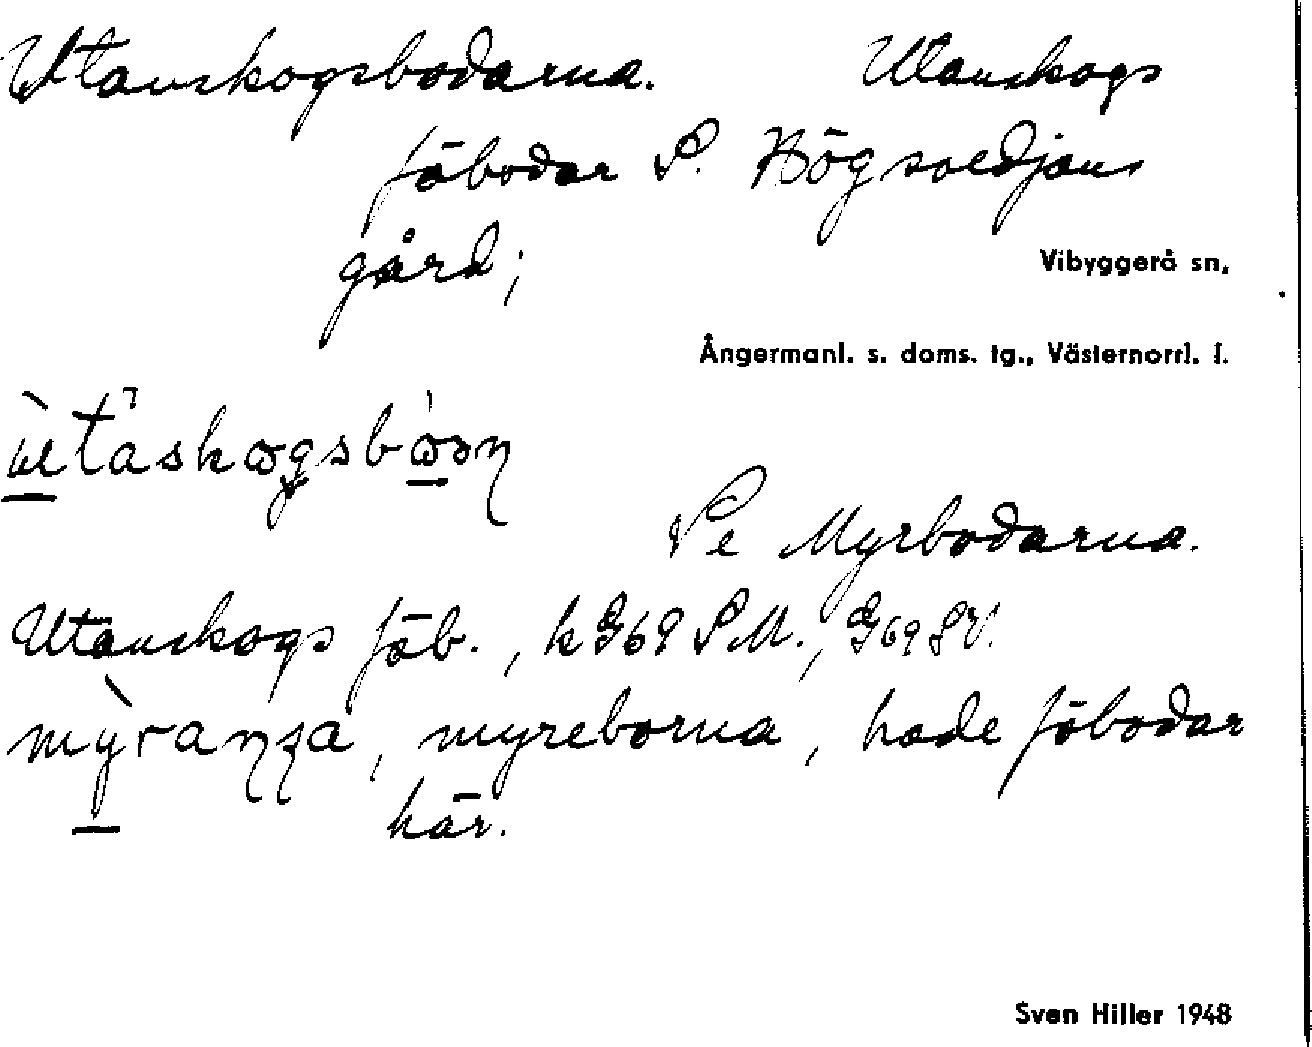 Utanskogsbodarna. Utanskogs
fäbodar S. Högsvedjans
gård;
Vibyggerå sn,
Ångermanl. s. doms. tg., Västernorrl. l.
Se Myrbodarna.
Utanskogs fäb., k G69 SM., G69 SV.
myreborna, hade fäbodar
här.
Sven Hiller 1948